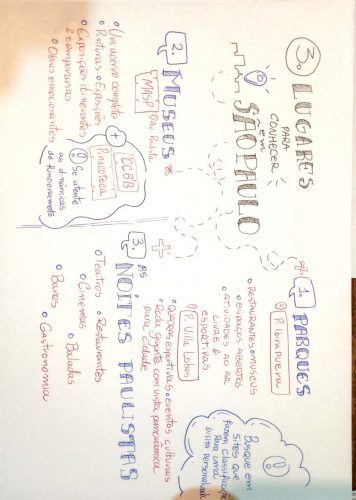 3. LUGARES
PARA
CONHECER
em
SÃO PAULO
1. PARQUES
P. Ibirapuera
o RESTAURANTES o MUSEUS
o ESPAÇOS ABERTOS
o ATIVIDADES AO AR
LIVRE &
ESPORTIVAS
P. Villa Lobos
o Quadras esportivas o eventos culturais
o Roda gigante com vista panorâmica
para cidade
! Busque em
sites que
fazem
para uma
visita
2. MUSEUS
MASP Av. Paulista
o Um acervo completo
o Pinturas o Exposições
o Exposições itinerantes
& temporárias
o Obras emocionantes
+ CCBB
Pinacoteca
! Se atente
as dinâmicas
de funcionamento
3. AS NOITES PAULISTAS
o Teatros o Restaurantes
o Cinemas o Baladas
o Bares o Gastronomia